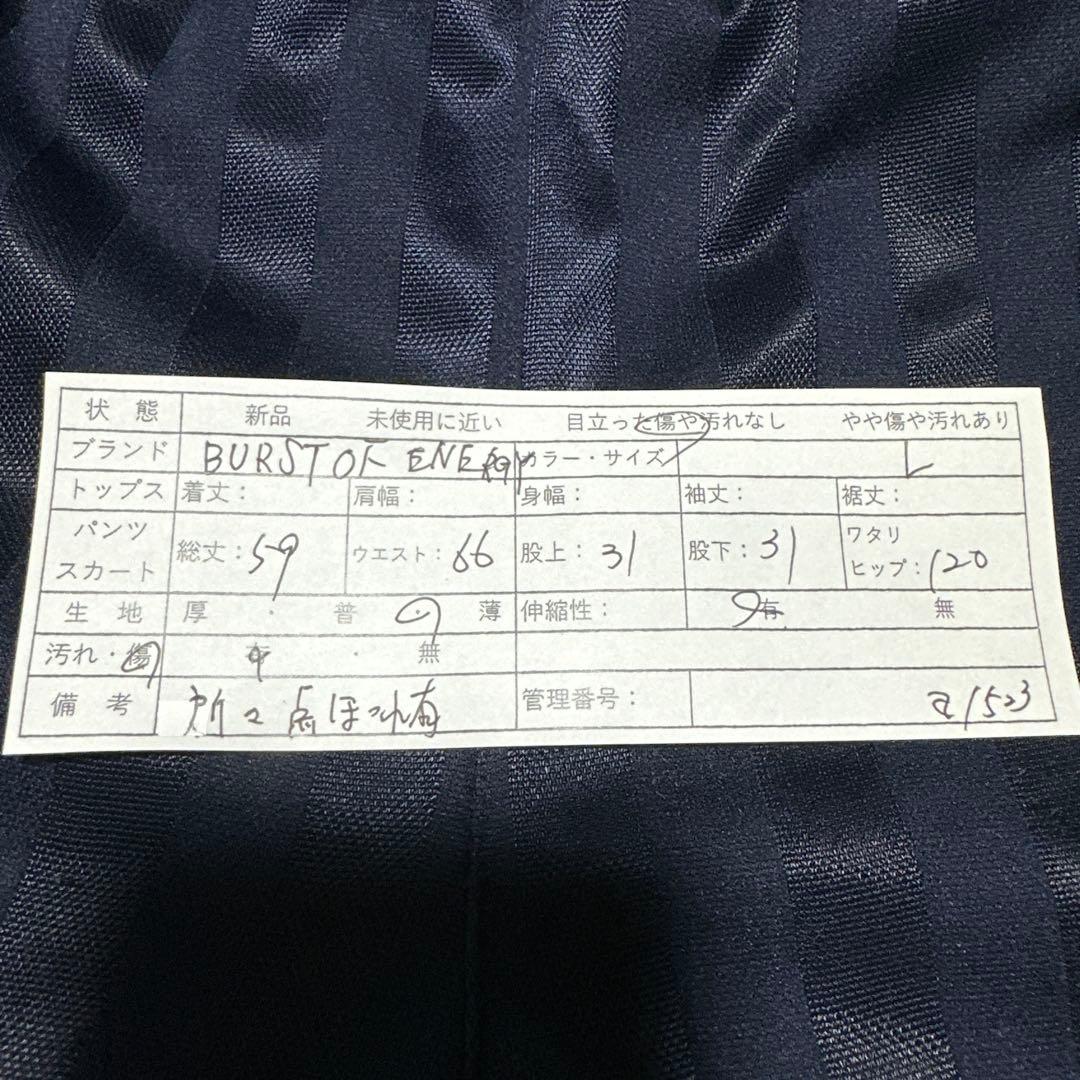 状態 新品 未使用に近い 目立った傷や汚れなし やや傷や汚れあり
ブランド BURST OF ENERGY カラー・サイズ L
トップス 着丈： 肩幅： 身幅： 袖丈： 裾丈：
パンツ スカート 総丈：59 ウエスト：66 股上：31 股下：31 ワタリ ヒップ：120
生地 厚・普・薄 伸縮性： 有 無
汚れ・傷 有・無
備考 所々点ほつれ有 管理番号： a1523